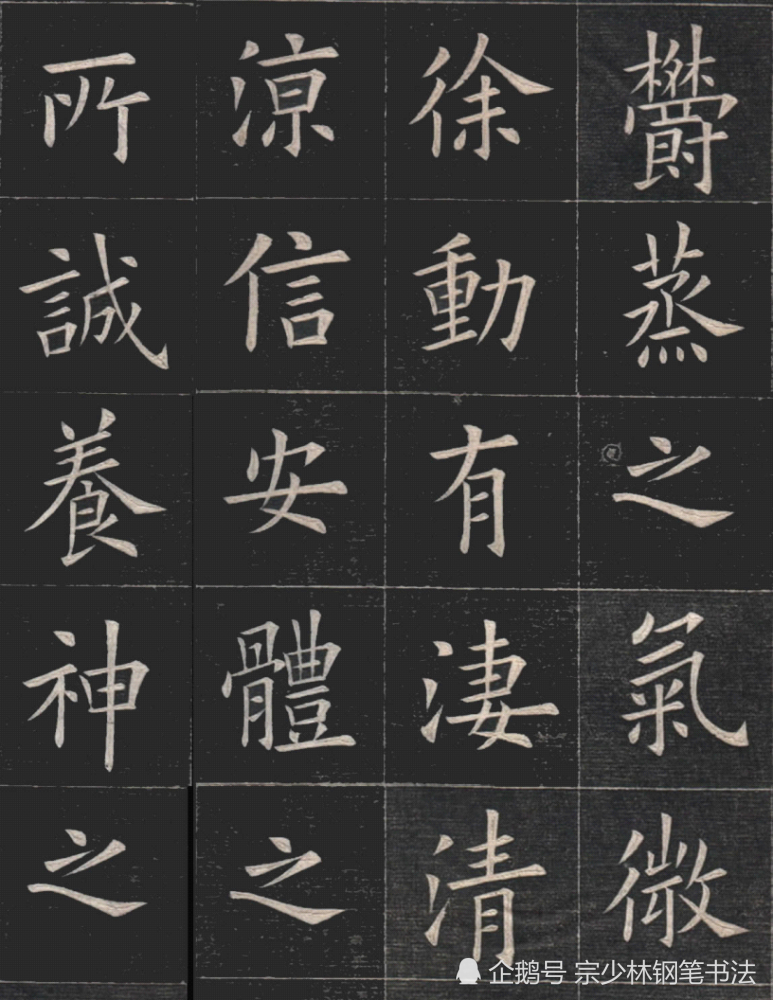 欝蒸之氣微
徐動有淒清
涼信安體之
所誠養神之
企鹅号 宗少林钢笔书法